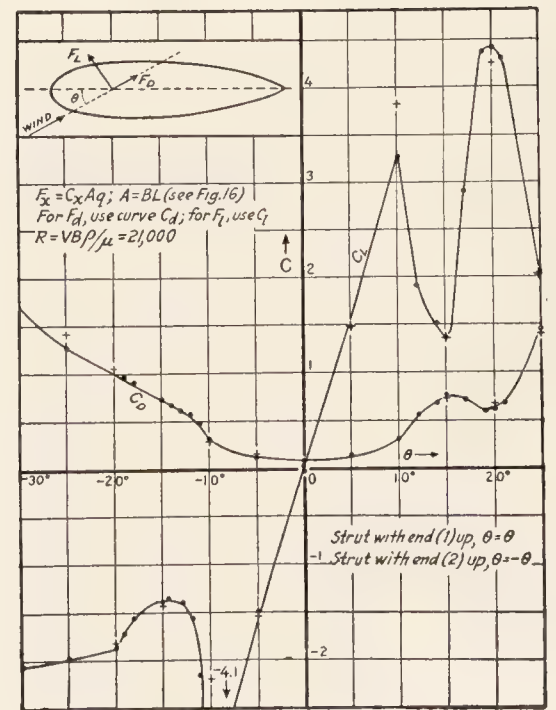 F_L
F_D
θ
WIND
F_x = C_x Aq; A = BL (see Fig. 16)
For F_d, use curve C_d; for F_l, use C_l
R = VBρ/μ = 21,000
C
C_L
C_D
4
3
2
1
θ
-30° -20° -10° 0 10° 20°
Strut with end (1) up, θ = θ
-1 Strut with end (2) up, θ = -θ
-2
-4.1